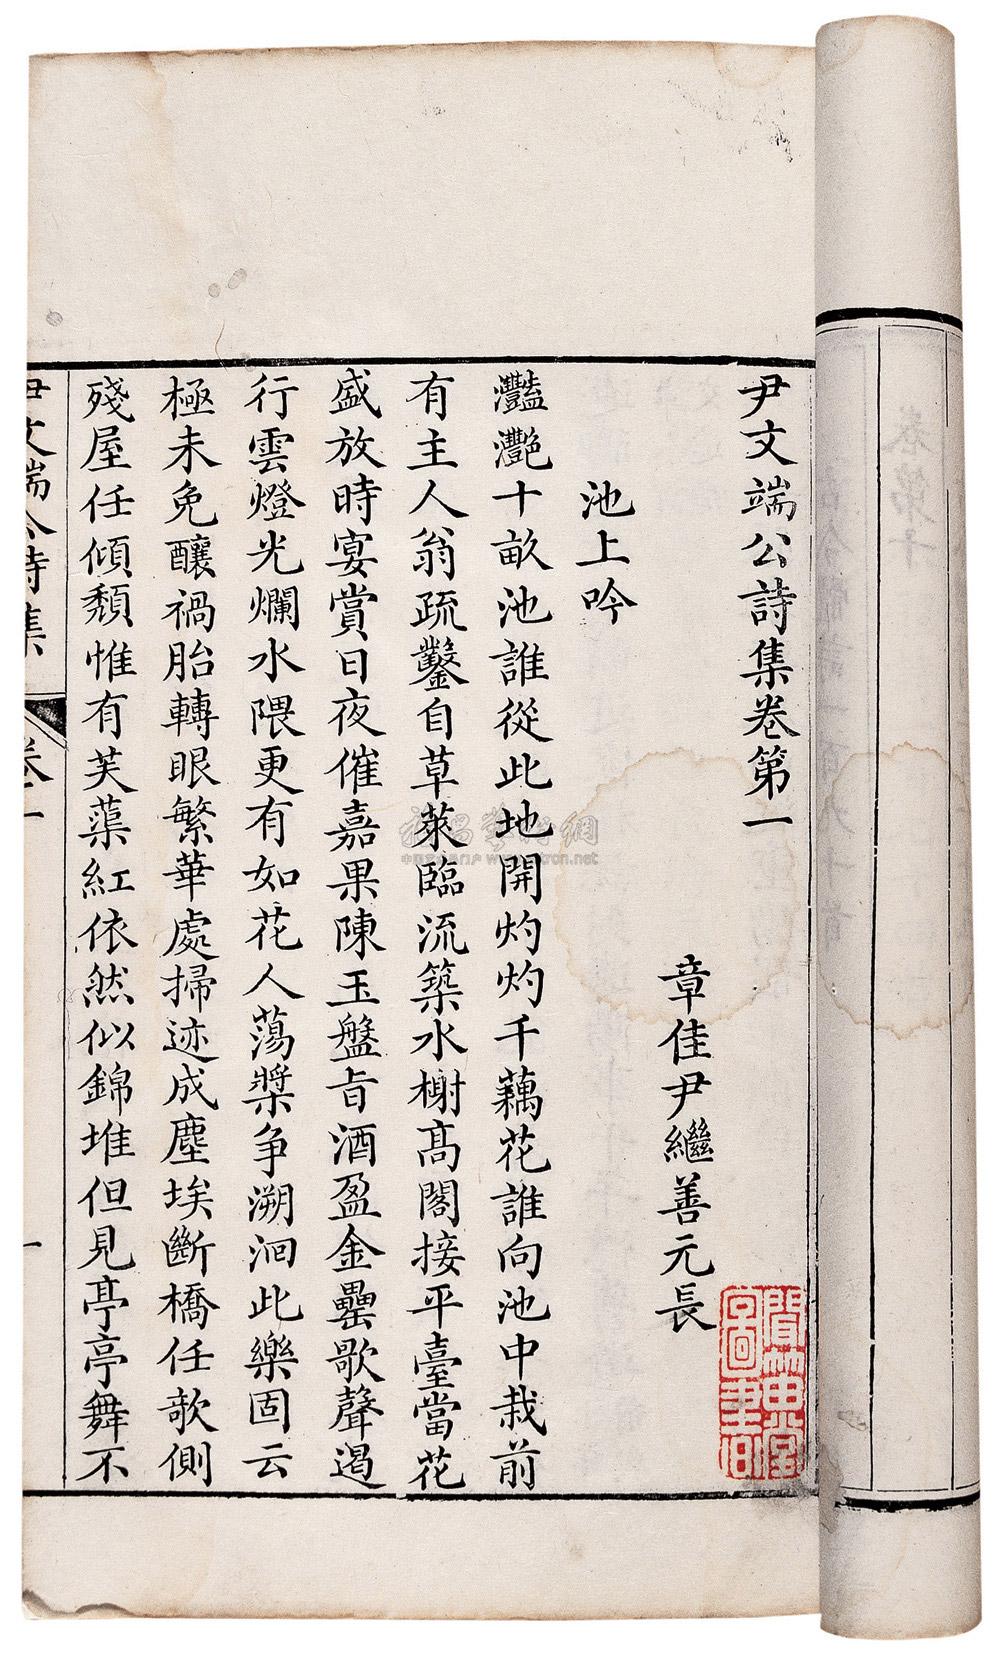 尹文端公詩集卷第一
章佳尹繼善元長
池上吟
灩灩十畝池誰從此地開灼灼千藕花誰向池中栽前
有主人翁疏鑿自草萊臨流築水榭髙閣接平臺當花
盛放時宴賞日夜催嘉果陳玉盤旨酒盈金罍歌聲遏
行雲燈光爛水隈更有如花人蕩槳争溯洄此樂固云
極未免釀禍胎轉眼繁華處掃迹成塵埃斷橋任欹側
殘屋任傾頹惟有芙蕖紅依然似錦堆但見亭亭舞不
尹文端公詩集
卷一
一
卷第十